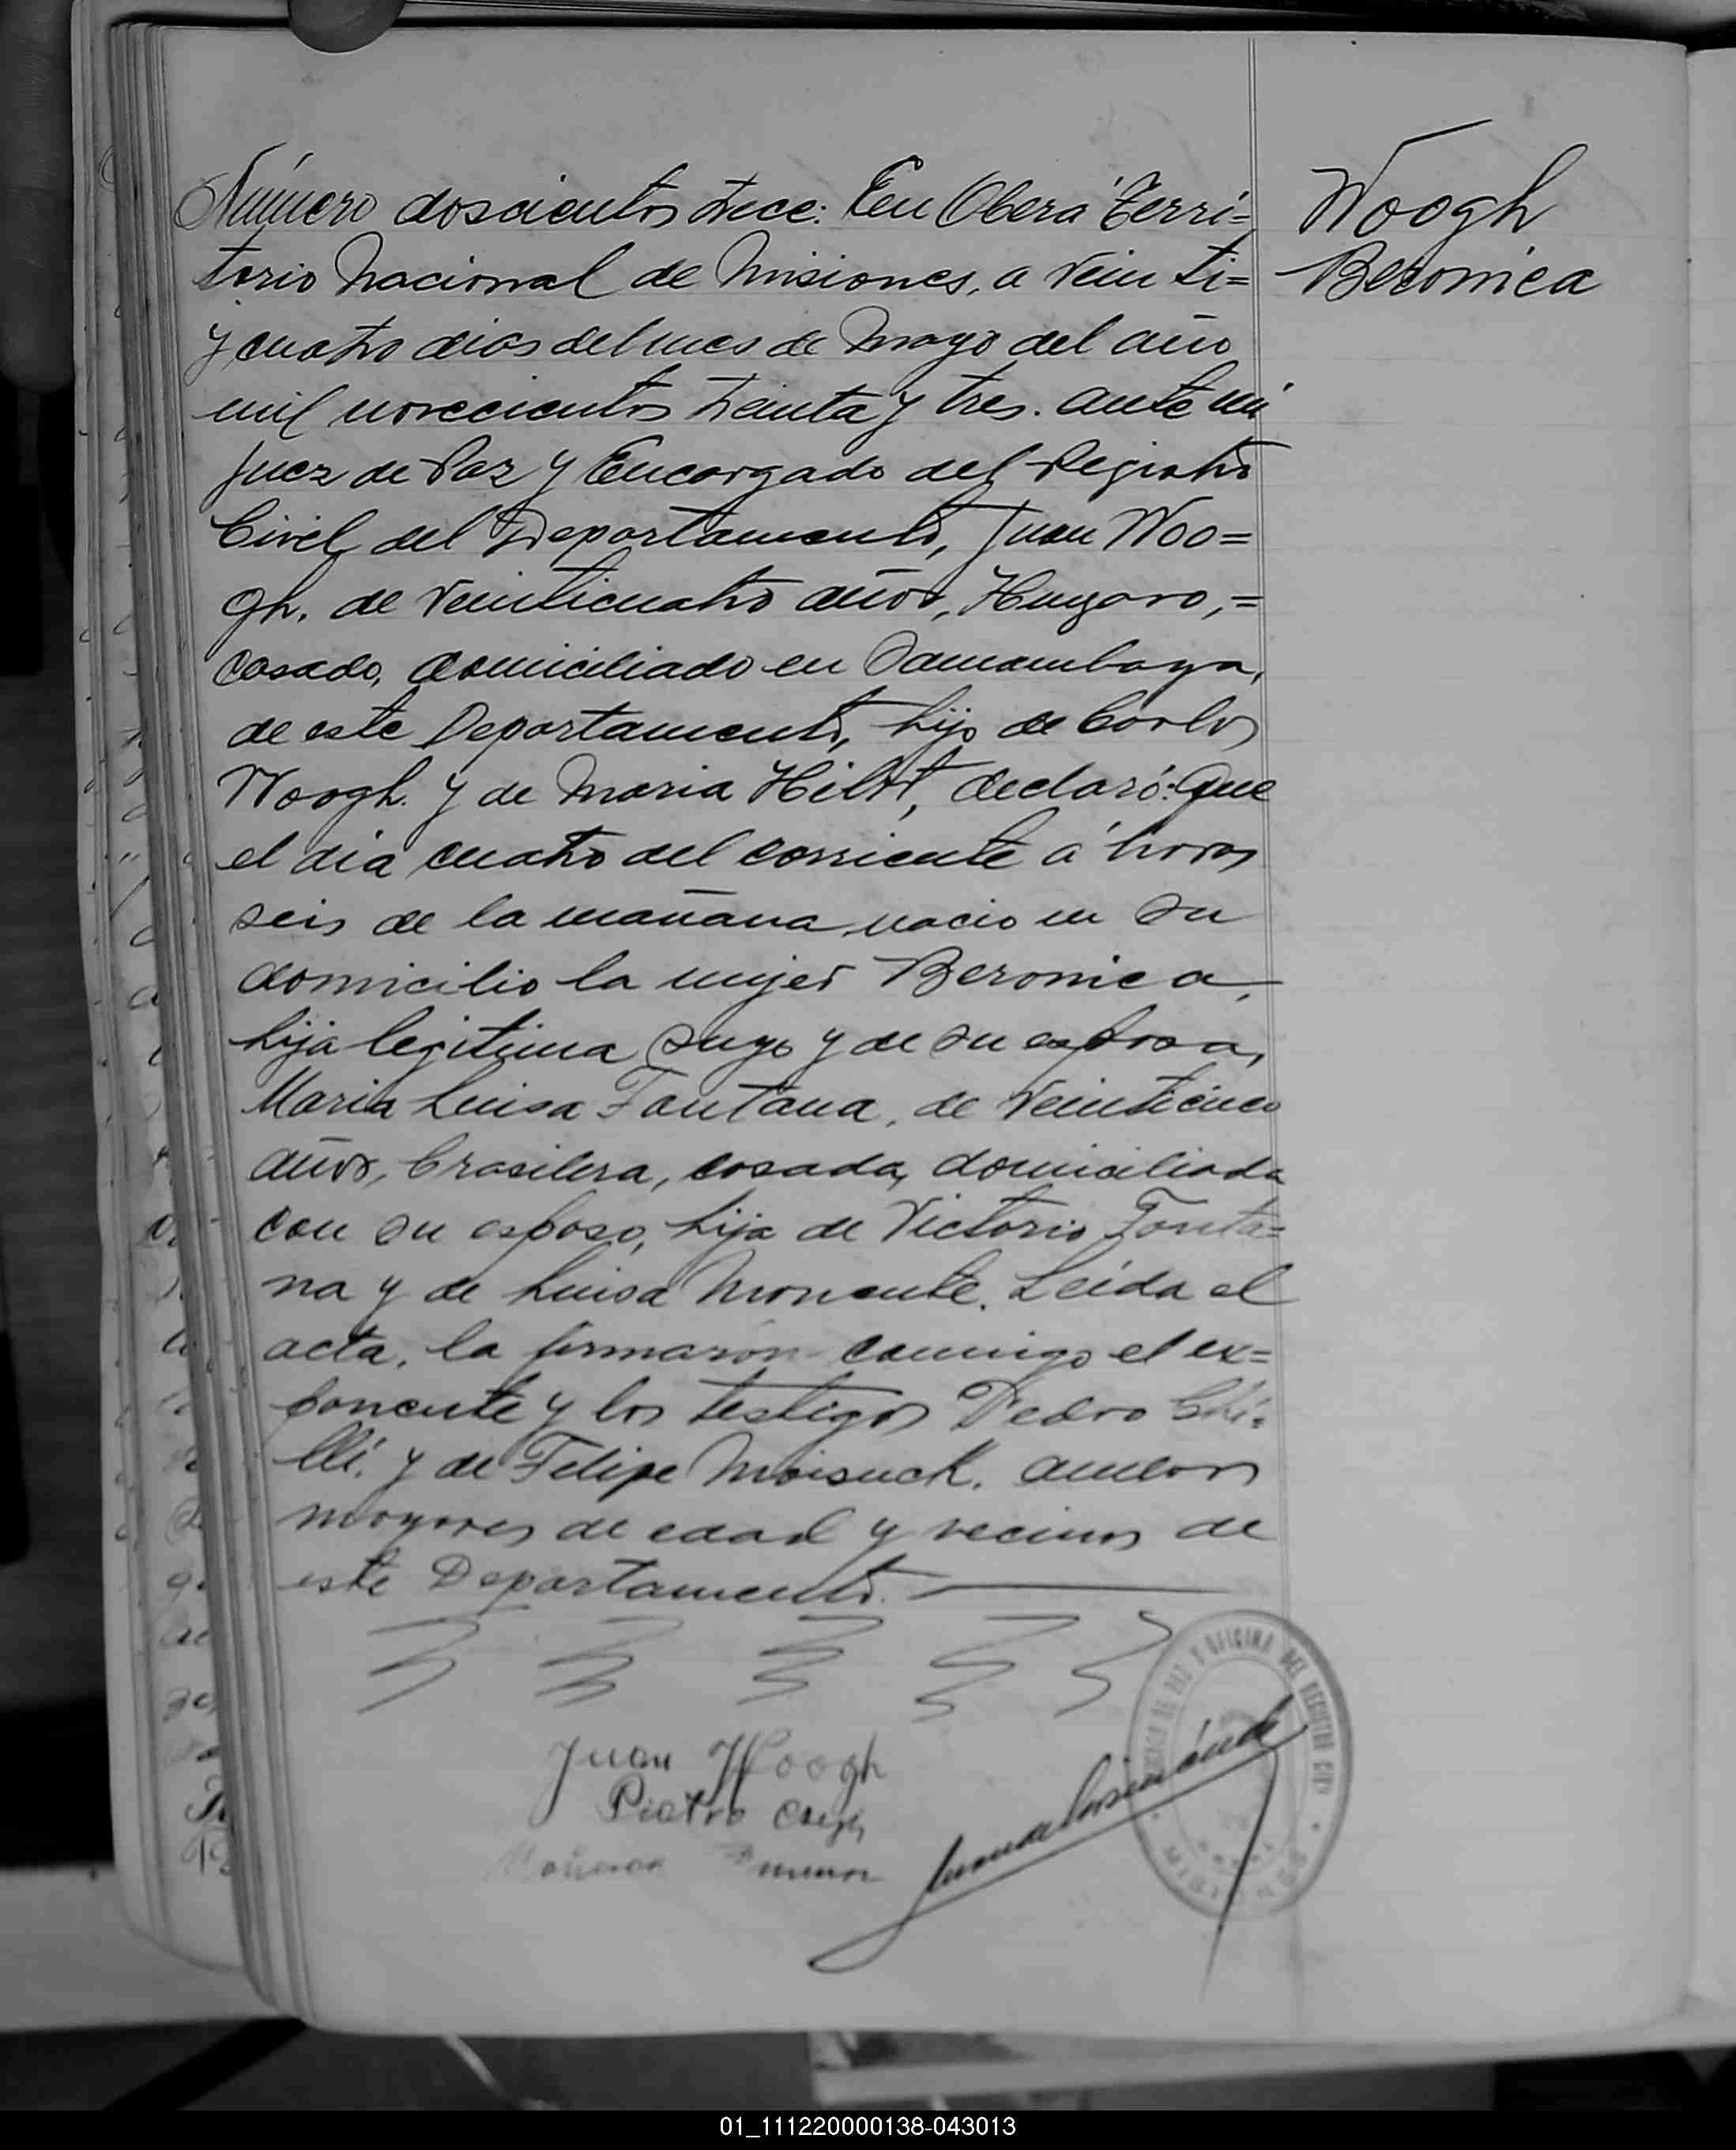 Número doscientos trece: En Oberá Terri=
torio Nacional de Misiones, a vein ti=
y cuatro dias del mes de Mayo del año
mil novecientos treinta y tres. ante mi
Juez de Paz y Encargado del Registro
Civil del Departamento, Juan Woo=
gh. de veinticuatro años, Hungaro,=
casado, domiciliado en Samambaya,
de este Departamento, hijo de Carlos
Woogh. y de Maria Hilst, declaró: Que
el dia cuatro del corriente a horas
seis de la mañana nacio en su
domicilio la mujer Beronica,
hija legitima suya y de su esposa,
Maria Luisa Fontana, de veinticinco
años, brasilera, casada, domiciliada
con su esposo, hija de Victorio Fonta=
na y de Luisa Monente. Leida el
acta, la firmaron conmigo el ex=
ponente y los testigos Pedro Chi=
lli. y de Felipe Moisuck. ambos
mayores de edad y vecinos de
este Departamento.
Woogh
Beronica
Juan Woogh
Pietro
JUZGADO DE PAZ Y OFICINA DEL REGISTRO CIVIL
MISIONES
01_111220000138-043013